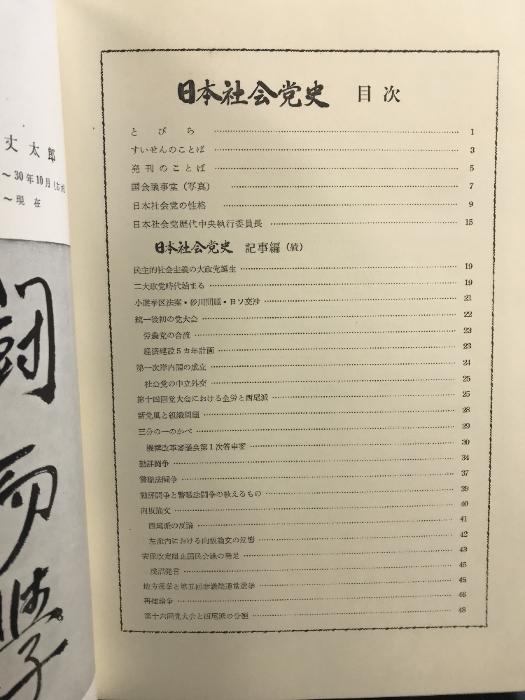 日本社会党史 目次
とびら 1
すいせんのことば 3
発刊のことば 5
国会議事堂(写真) 7
日本社会党の性格 9
日本社会党歴代中央執行委員長 15
日本社会党史 記事編(続)
民主的社会主義の大政党誕生 19
二大政党時代始まる 19
小選挙区法案・砂川問題・日ソ交渉 21
統一後初の党大会 22
労農党の合流 23
経済建設5カ年計画 23
第一次岸内閣の成立 24
社会党の中立外交 25
第十四回党大会における全労と西尾派 25
新党風と組織問題 28
三分の一のかべ 29
機構改革審議会第1次答申案 30
勤評闘争 34
警職法闘争 37
勤評闘争と警職法闘争の教えるもの 39
向坂論文 40
西尾派の反論 41
左派内における向坂論文の反響 42
安保改定阻止国民会議の発足 43
浅沼発言 45
地方選挙と第五回参議院通常選挙 45
再建論争 46
第十六回党大会と西尾派の分裂 48
丈太郎
～30年10月
～現在
闘